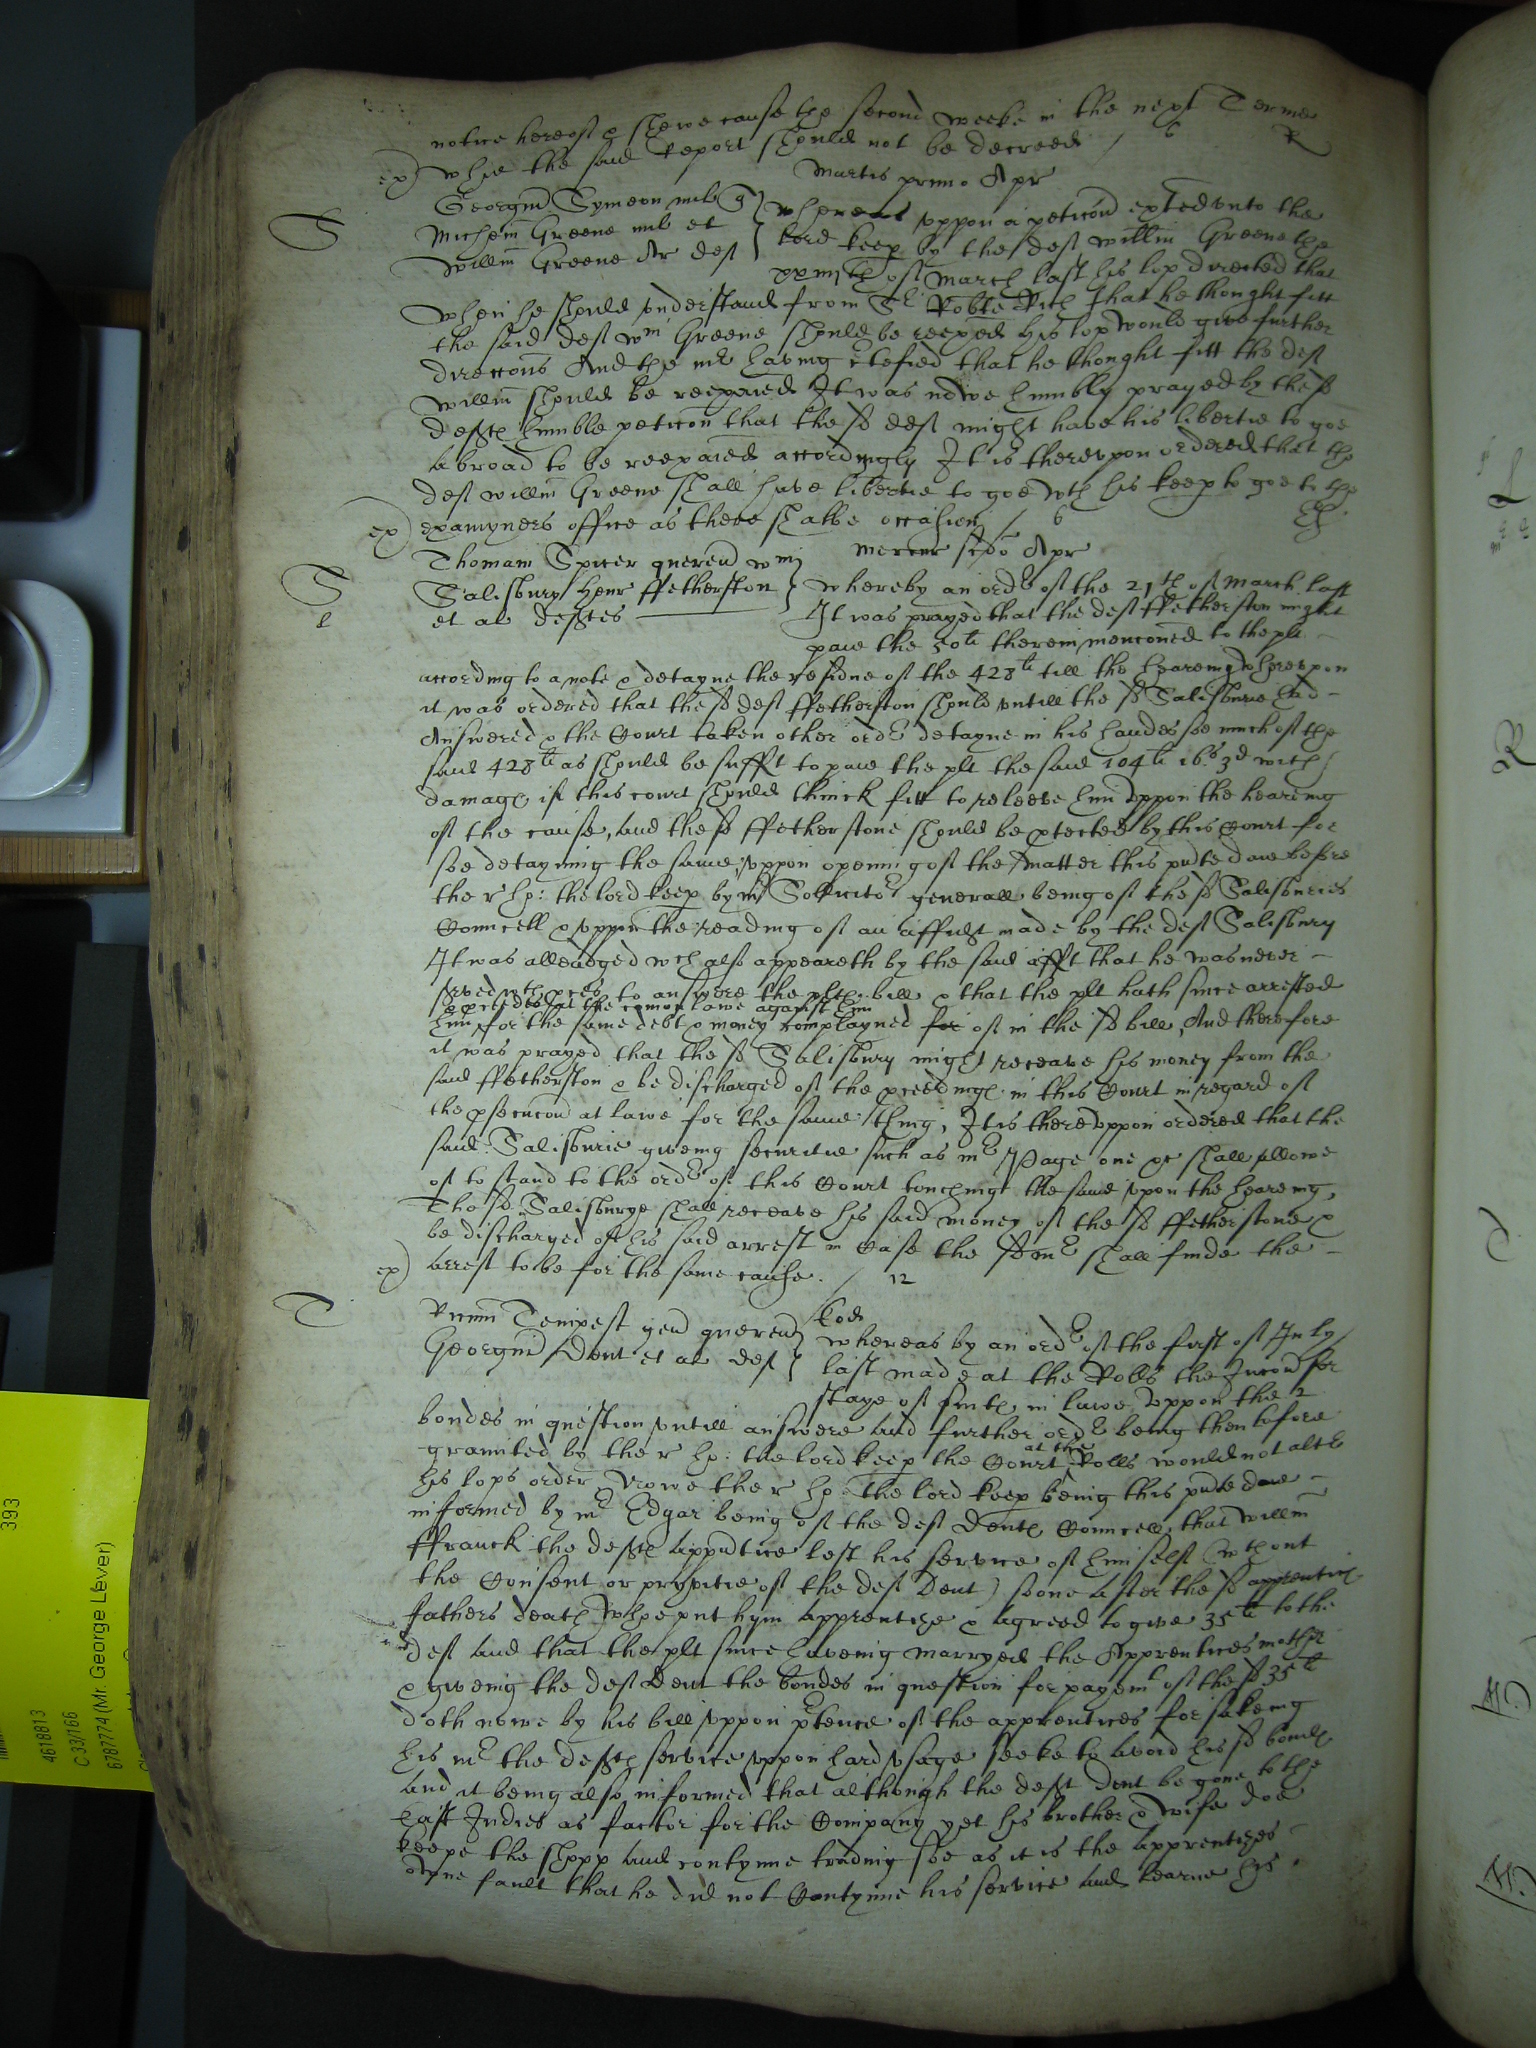 notice hereof & shewe cause the second weeke in the next Terme
ex) whie the said Report should not be decreed / 6 R
Martis primo Apr
S Georgiū Symeon mil q
Michem Greene mil et
Willm Greene Ar def
whereas uppon a peticōn exhted unto the
lord keep by the def willm Greene the
xxiiijth of March last his lop directed that
when he should understand from Sr Robte Rich that he thought fitt
the said def Wm Greene should be reexed his lop would give further
direccons And the mr having c̃tefied that he thought fitt the def
Willm should be reexaied It was nowe humbly prayed by the sd
defts humble peticon that the sd def might have his libertie to goe
abroad to be reexaied accordingly It is thereupon ordered that the
def willm Greene shall have libertie to goe wth his keep to goe to the
ex) examyners office as there shalbe occasion / 6
Mercur scdo Apr
S Thomam Spicer querend Wm
Salisbury Henr ffetherston
l et al deftes
whereby an ordr of the 21th of March last
It was prayed that the def ffetherston might
paie the 50li therein menconed to the plt
according to a note & detayne the residue of the 428li till the heareing whereupon
it was ordered that the sd def ffetherston should untill the sd Salisburie had
Answered & the Court taken other ordr detayne in his handes soe much of the
said 428li as should be sufft to paie the plt the said 104li 16s 3d with
damage if this court should thinck fitt to releeve him uppon the heareing
of the cause, and the sd ffetherstone should be ptected by this Court for
soe detayning the same, uppon opening of the matter this pnte daie before
the r hp: the lord keep by mr Sollicitor generall being of the sd Salisburies
Councell & uppon the reading of an affidt made by the def Salisbury
It was alleadged wch also appeareth by the said afft that he was never
served wth pces to answere the plts bill & that the plt hath since arrested
& pceeded at the comon lawe against him
him for the same debt & money complayned for of in the sd bill, And therefore
it was prayed that the sd Salisbury might receave his money from the
said ffetherston & be discharged of the pceedings in this Court in regard of
the psecucon at lawe for the same thing, It is thereuppon ordered that the
said Salisburie giveing securitie such as mr Page one &c shall allowe
of to stand to the ordr of this Court touching the same upon the heareing,
The sd Salisburye shall receave his said money of the sd ffetherstone &
be discharged of his said arrest in Case the sd mr shall finde the
ex) arrest to be for the same cause. / 12
T Ricūm Tempest gen querend
Georgiū Dent et al def
Eod
whereas by an ordr of the first of July
last made at the Rolls the Iniucon for
staye of suits in lawe uppon the 2
bondes in question untill answere and further ordr being then before
graunted by the r hp: the lord keep the Court at the Rolls would not alter
his lops order, Nowe the r hp: the lord keep being this pnte daie
informed by mr Edgar being of the def Dents Councell, that Willm
ffranck the defts apprntice left his service of himself (without
the Consent or privitie of the def Dent) soone after the sd apprentices
fathers death whoe put hym apprentize & agreed to give 35li to the
def and that the plt since haveing marryed the Apprentices mother
& giveing the def Dent the bondes in question for payemt of the sd 35li
doth nowe by his bill uppon prtence of the apprentices forsakeing
his mr the defts service uppon hard usage seeke to avoid his sd bonds
and it being also informed that although the deft Dent be gone to the
East Indies as factor for the Company yet his brother & wife doe
keepe the shopp and contynue trading soe as it is the apprentizes
owne fault that he did not Contynue his service and learne his
393
4618813
C 33/166
6787774 (Mr. George Lever)